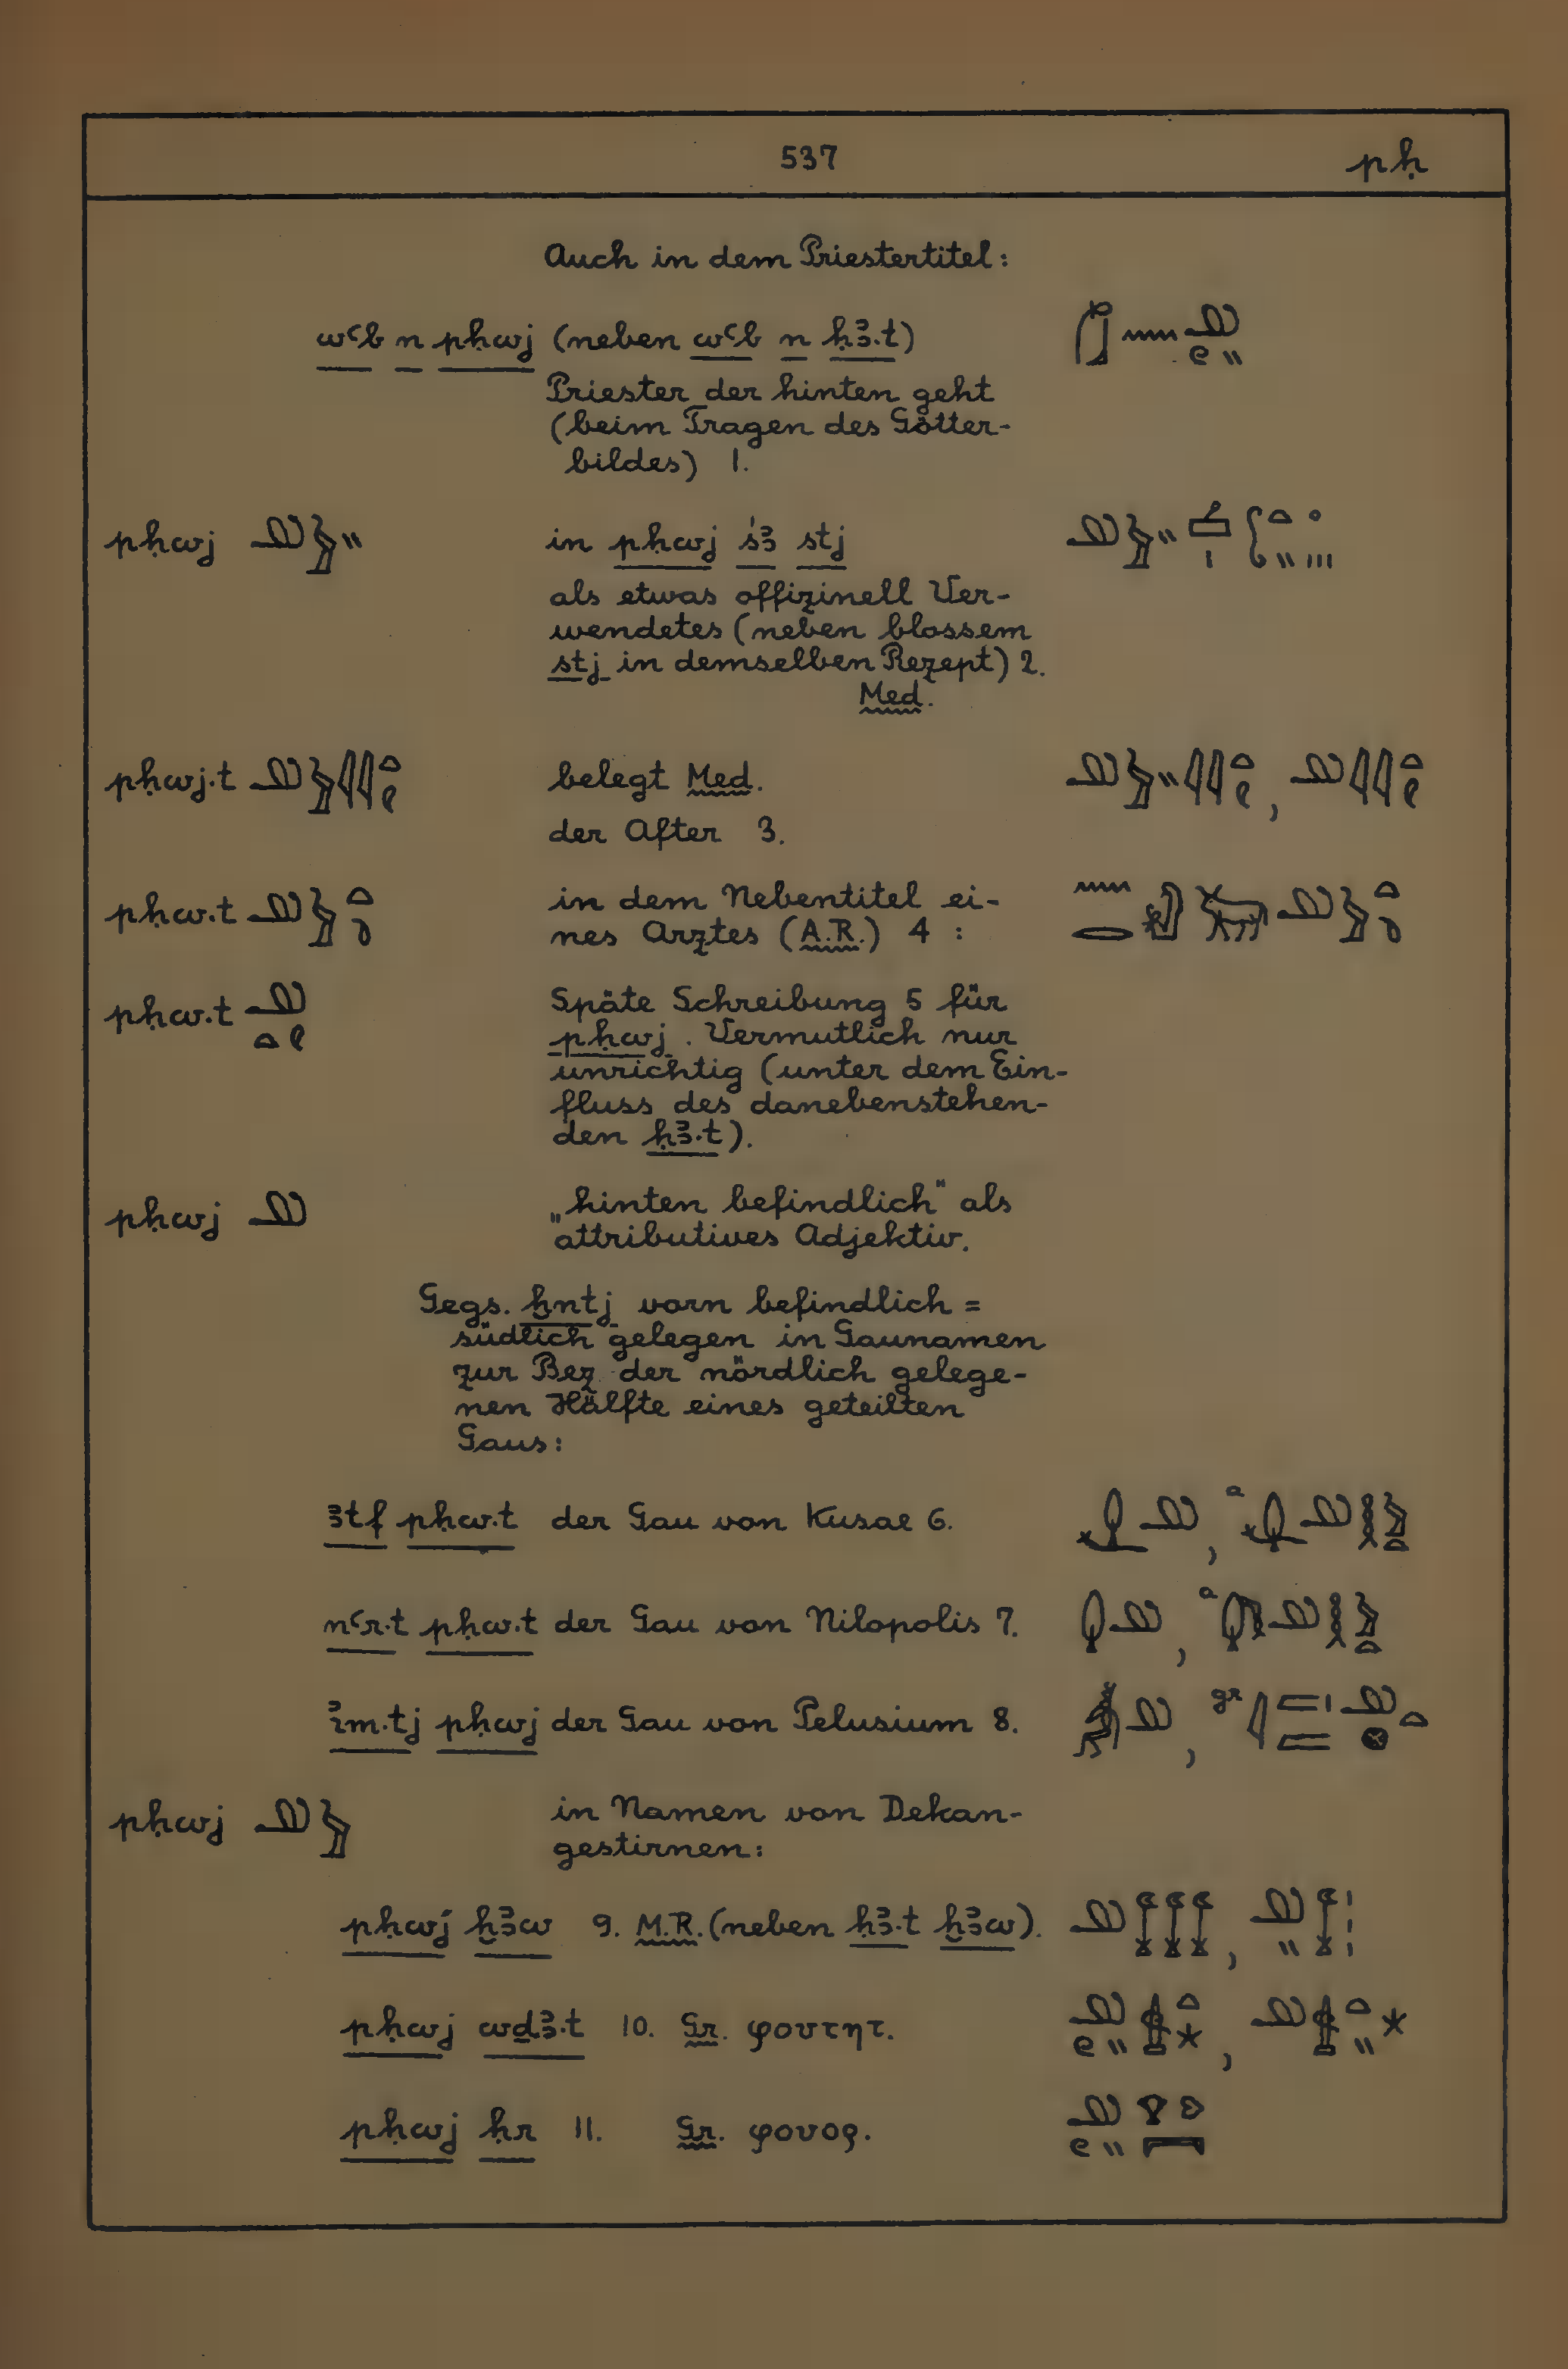 537
pḥ
Auch in dem Priestertitel:
wꜥb n pḥwj (neben wꜥb n ḥꜣ.t)
Priester der hinten geht
(beim Tragen des Götter-
bildes) 1.
pḥwj in pḥwj śꜣ stj
als etwas offizinell Ver-
wendetes (neben blossem
stj in demselben Rezept) 2.
Med.
pḥwj.t belegt Med.
der After 3.
pḥw.t in dem Nebentitel ei-
nes Arztes (A.R.) 4 :
pḥw.t Späte Schreibung 5 für
pḥwj. Vermutlich nur
unrichtig (unter dem Ein-
fluss des danebenstehen-
den ḥꜣ.t).
pḥwj „hinten befindlich" als
attributives Adjektiv.
Gegs. ḫntj vorn befindlich =
südlich gelegen in Gaunamen
zur Bez. der nördlich gelege-
nen Hälfte eines geteilten
Gaus:
ꜣtf pḥw.t der Gau von Kusae 6. a
nꜥr.t pḥw.t der Gau von Nilopolis 7. a
ꜣm.tj pḥwj der Gau von Pelusium 8. gr
pḥwj in Namen von Dekan-
gestirnen:
pḥwj ḫꜣw 9. M.R. (neben ḥꜣ.t ḫꜣw).
pḥwj wḏꜣ.t 10. Gr. φουτητ.
pḥwj ḥr 11. Gr. φουορ.